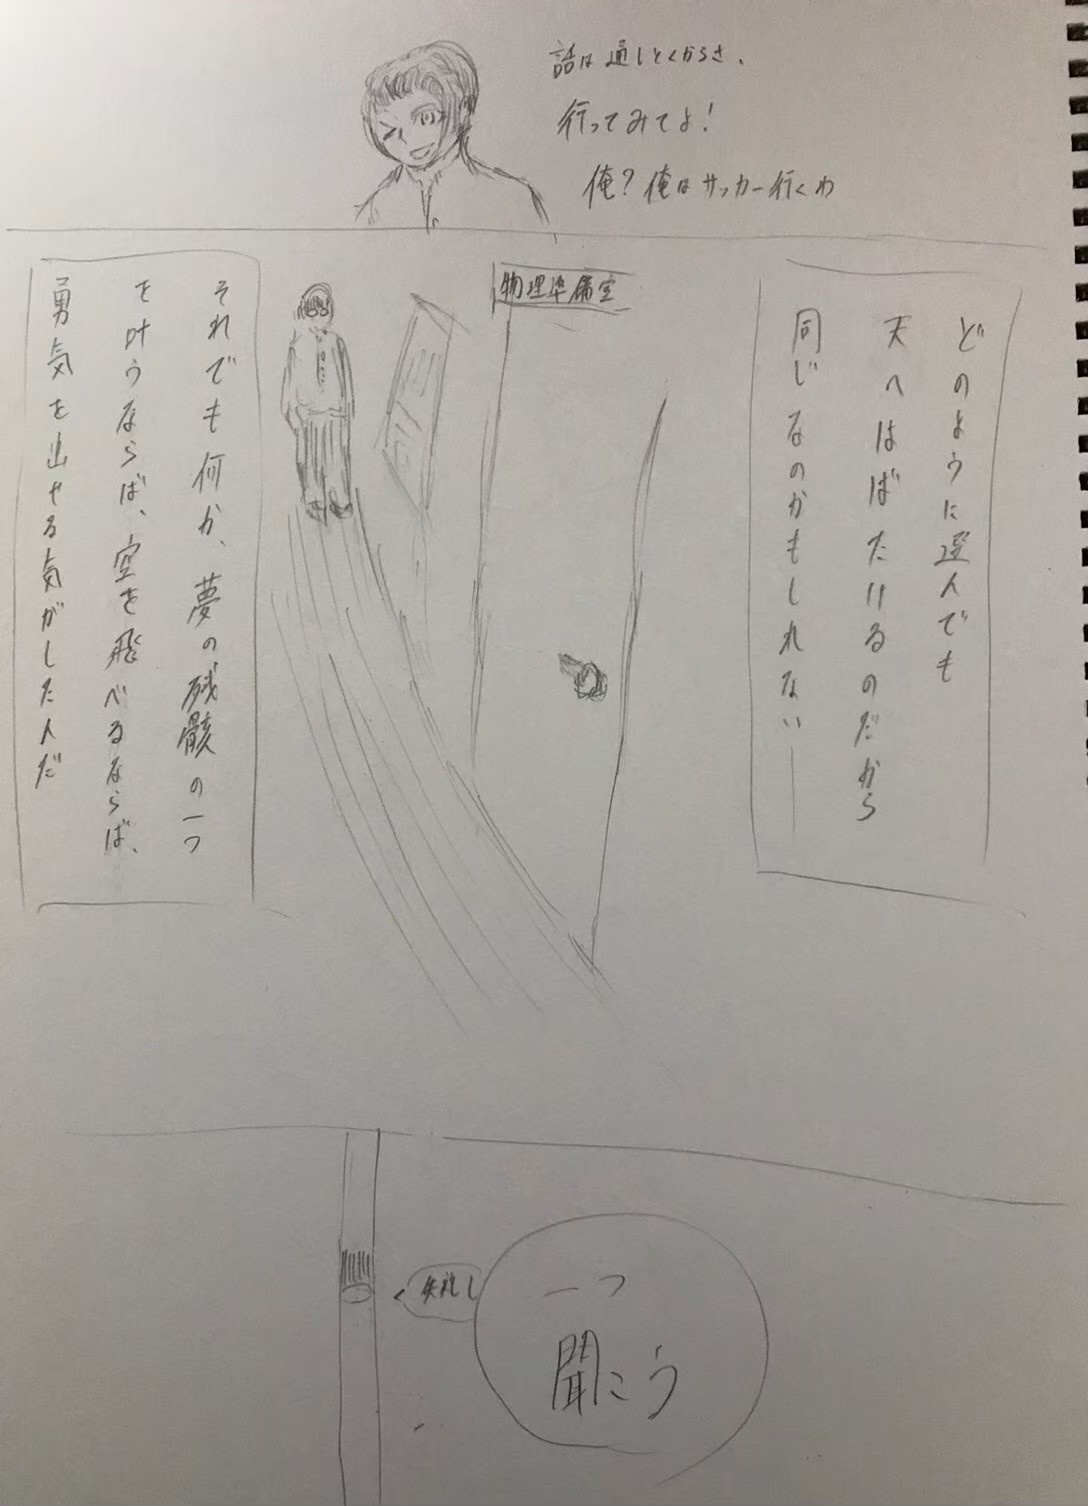 話は通しとくからさ、
行ってみてよ!
俺?俺はサッカー行くわ
どのように選んでも
天へはばたけるのだから
同じなのかもしれない――
物理準備室
それでも何か、夢の残骸の一つ
を叶うならば、空を飛べるならば、
勇気を出せる気がしたんだ
失礼し
一つ
聞こう